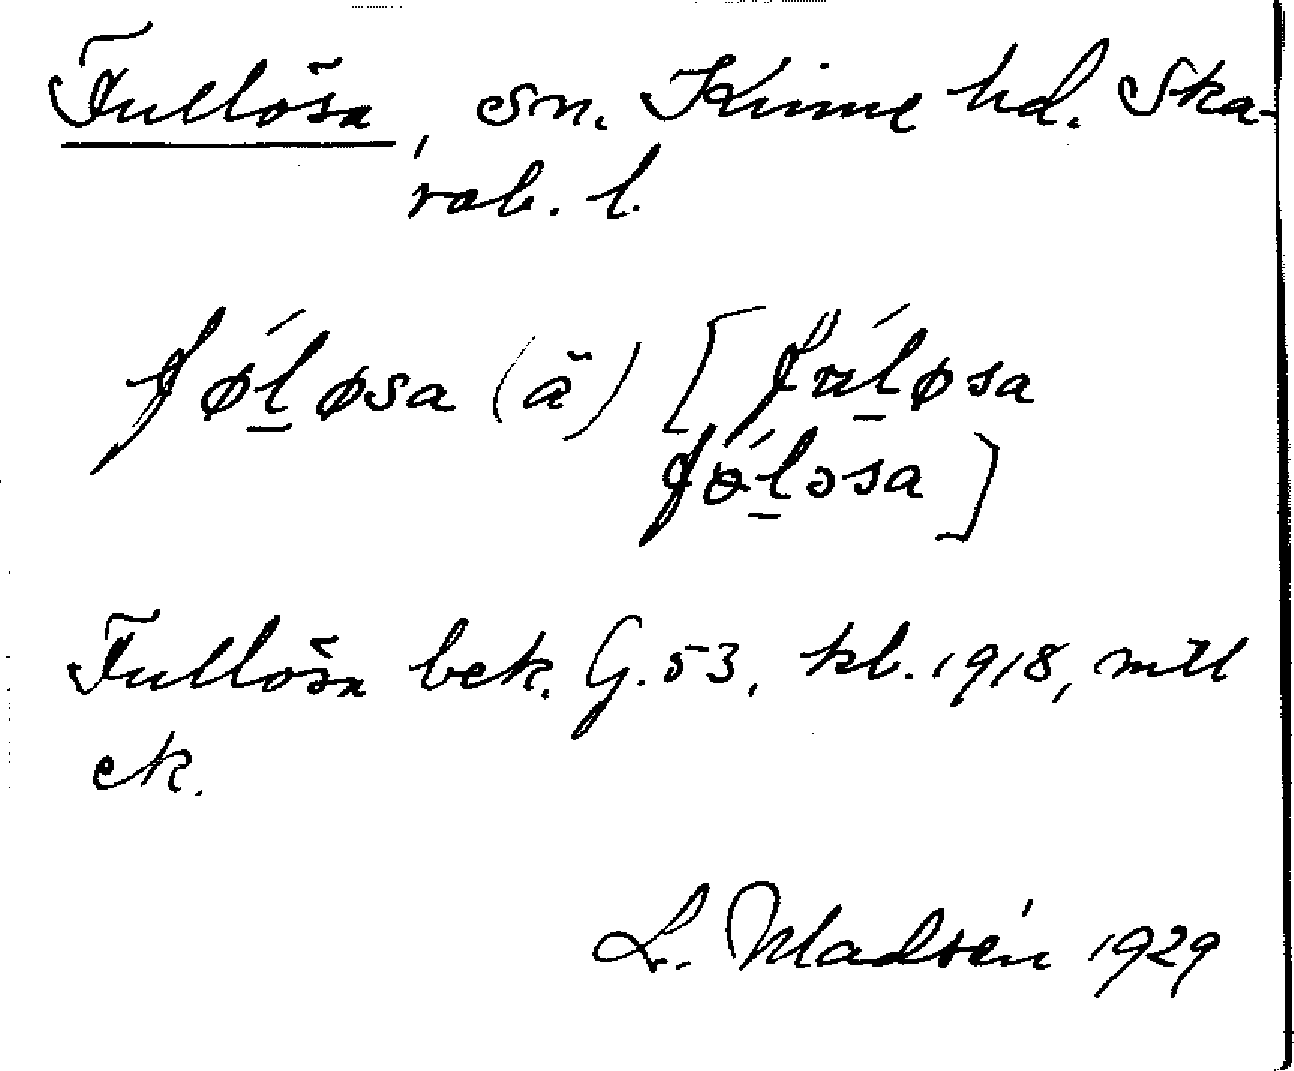 Fullösa, sn. Kinne hd. Ska-
rab. l.
fǿl̲øsa (ä) [fúl̲øsa
fól̲əsa]
Fullösa bek. G. 53, kb. 1918, mtl
ek.
L. Madsén 1929